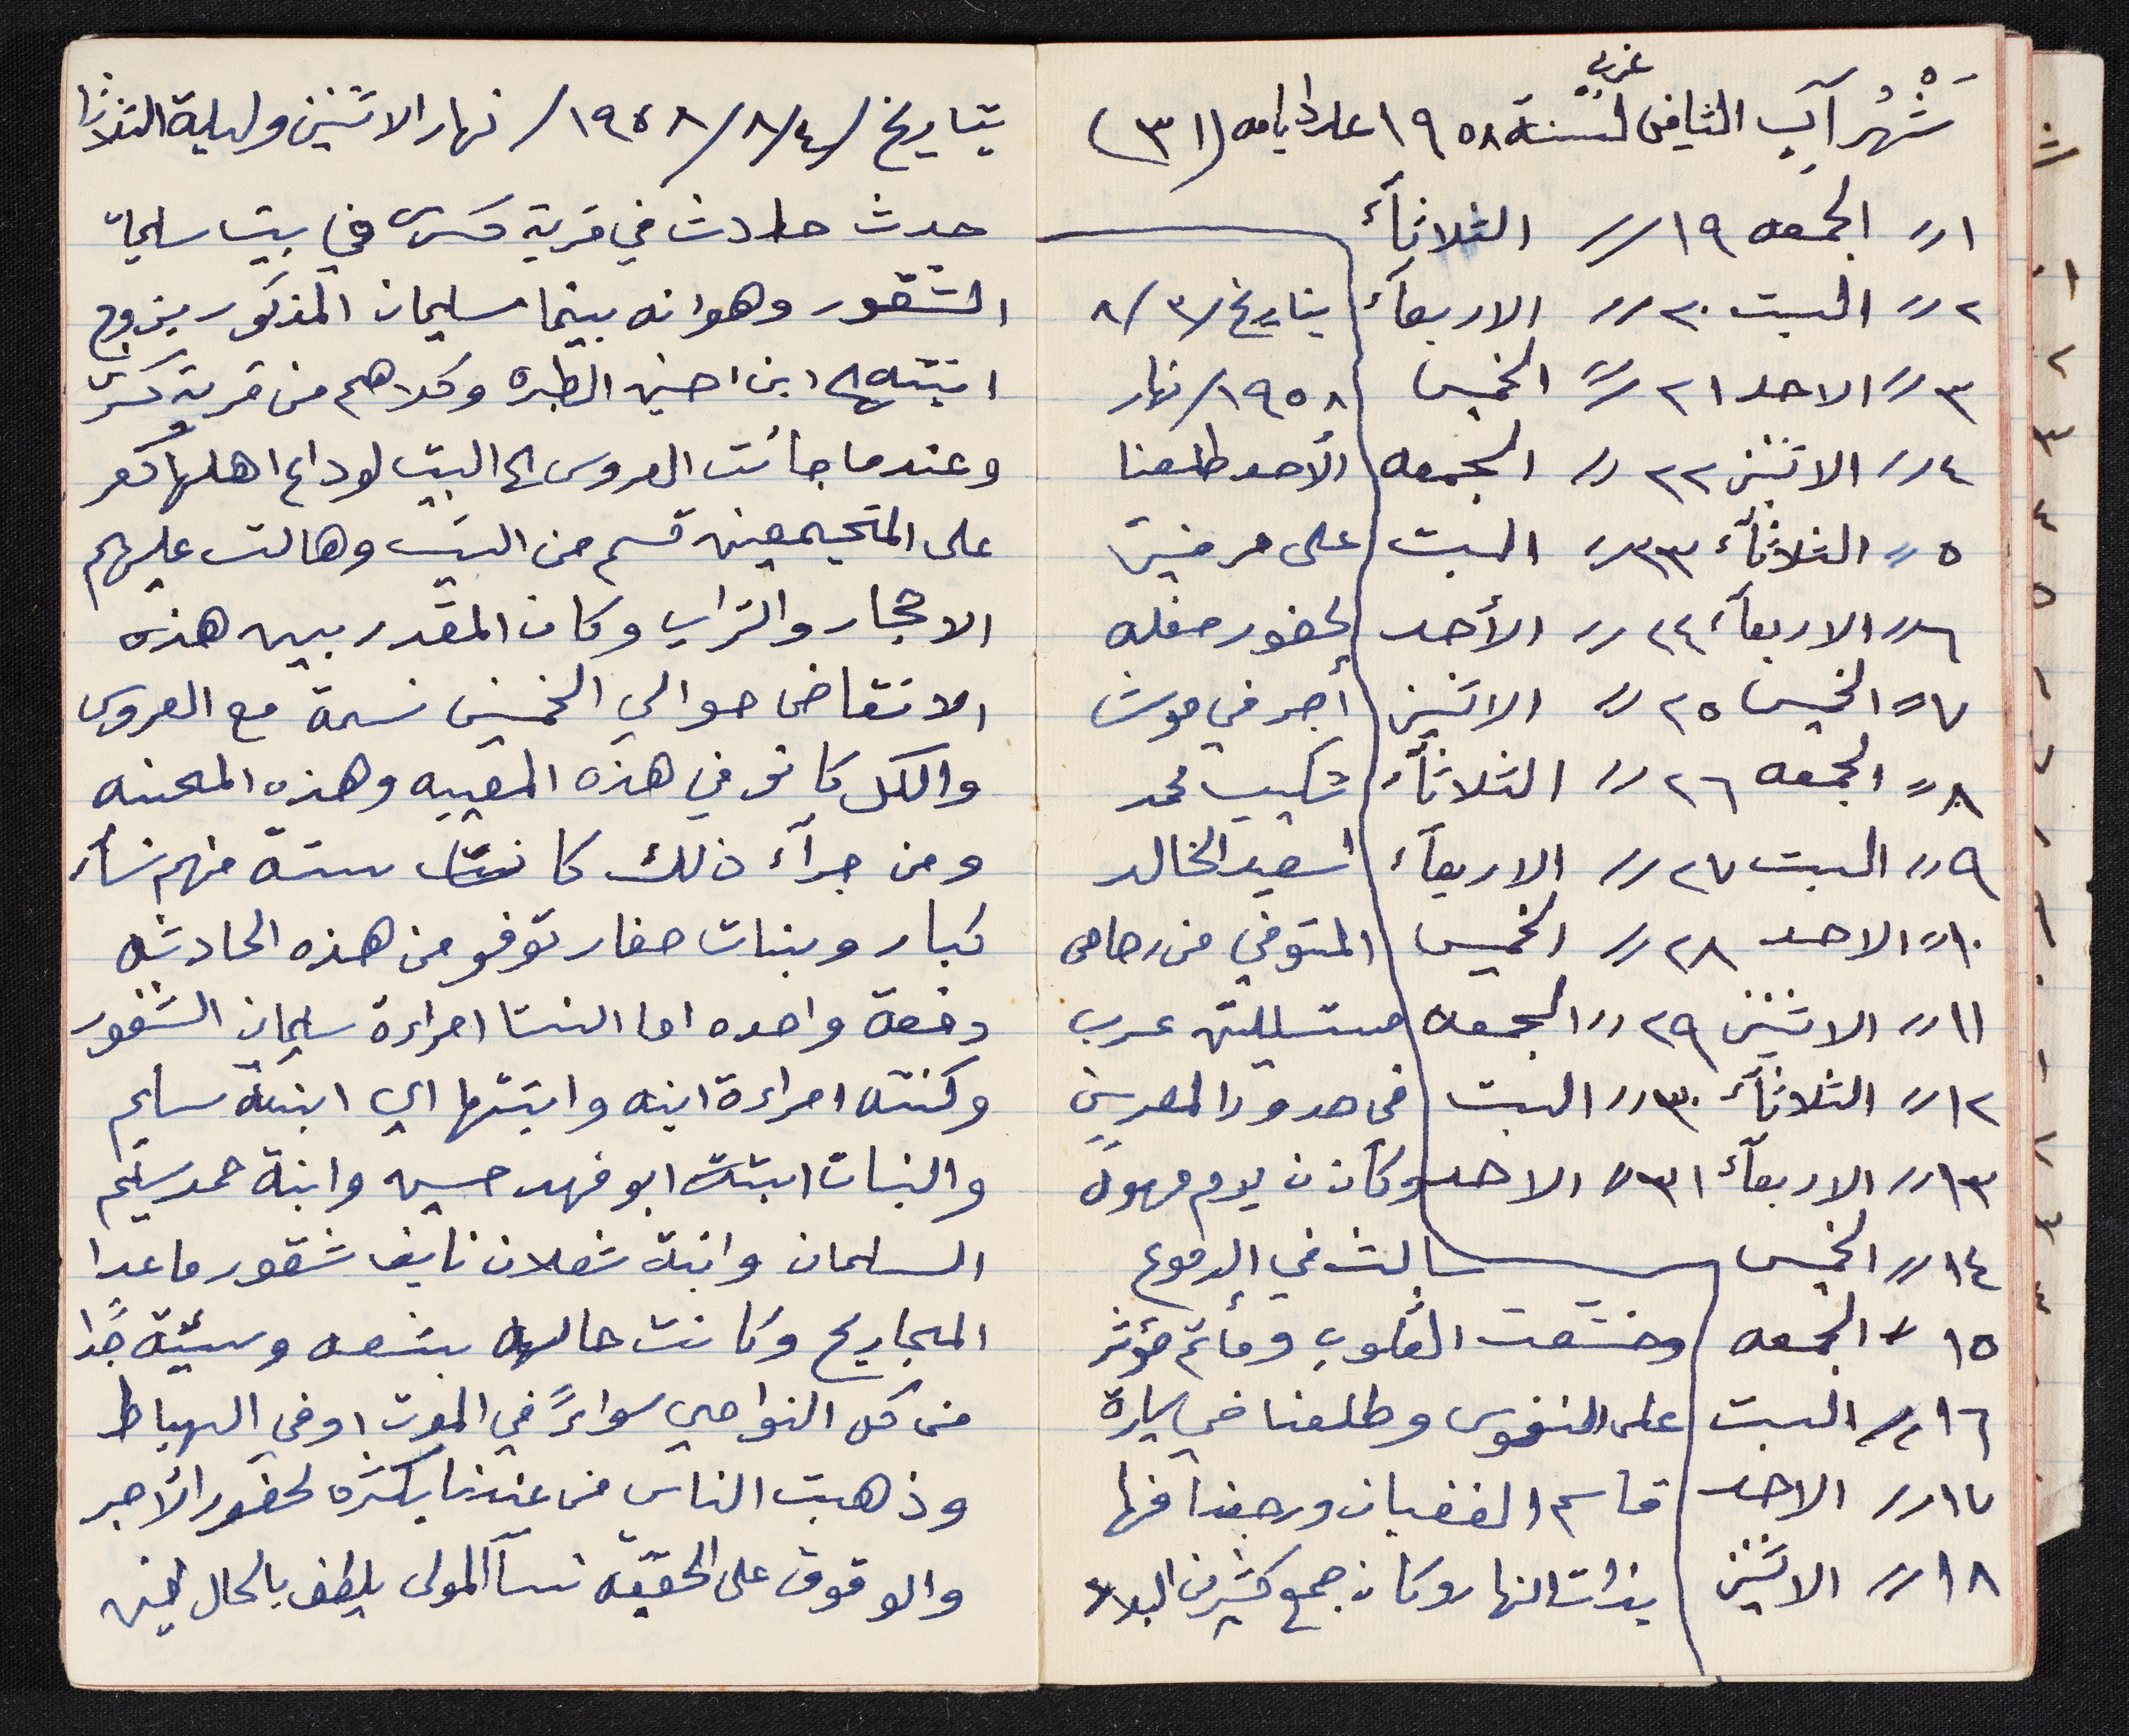 شَهْرُ آب الثامن لسنة ١٩٥٨ غربي عدد ايامه (٣١)
١ // الجمعه ١٩ // الثلاثآء
٢ // السبت ٢٠ // الاربعآء
٣ // الاحد ٢١ // الخميس
٤ // الاثنين ٢٢ // الجمعه
٥ // الثلاثآء ٢٣ // السبت
٦ // الاربعآء ٢٤ // الأحد
٧ // الخميس ٢٥ // الاثنين
٨ // الجمعه ٢٦ // الثلاثآء
٩ // السبت ٢٧ // الاربعآء
١٠ // الاحد ٢٨ // الخميس
١١ // الاثنين ٢٩ // الجمعه
١٢ // الثلاثآء ٣٠ // السبت
١٣ // الاربعآء ٣١ // الاحد
١٤ // الخميس
١٥ // الجمعه
١٦ // السبت
١٧ // الاحد
١٨ // الاثنين
بتاريخ /٣/ ٨/
١٩٥٨/ نهار
الأحد طلعنا
على
لحضور حفله
أجر في موت
شكيب محمد
اسعيد الخالد
المتوفي من رصاص
متسللين عرب
في حدود المصريين
وكان يوم مهول
سالت في الدموع
وخشعت القلوب ومأتم مؤثر
على النفوس وطلعنا في سيارة
قاسم الغضبان ورجعنا فيها
بذات النهار وكان جمع كثير من البلاد
بتاريخ /٨/٤/ ١٩٥٨/ نهار الاثنين وليلة الثلاثا
حدث حادث في قرية كسرى في بيت سليمان
الشقور وهو انه بينما سليمان المذكور يزوج
ابنته الى ابن احسين الطبره وكلاهم من قرية كسرى
وعندما جائت العروس الى البيت لوداع اهلها
على المتجيمعين قسم من البيت وهالت عليهم
الاحجار والتراب وكان المقدر بين هذه
الانقاض حوالي الخمسين نسمة مع العروس
والكل كانو في هذه المصيبه وهذه المحنه
ومن جرآء ذلك كانت ستة منهم نسآء
كبار وبنات صغار توفو من هذه الحادثه
دفعة واحده اما النسا امراءة سليمان الشقور
وكنته امراءة ابنه وابنتها اي ابنة سليم
والبنات ابنة ابو فهد حسين وابنة حمد سليم
السلمان وابنة شعلان نايف شقور ماعدا
المجاريح وكانت حالهه بشعه وسيئة جدًا
من كل النواحي سواءً في الموت اوفي الهباط
وذهبت الناس من عندنا بكثره لحضور الأجر
والوقوف على الحقيقة نسآل المولى يلطف بالحال امين